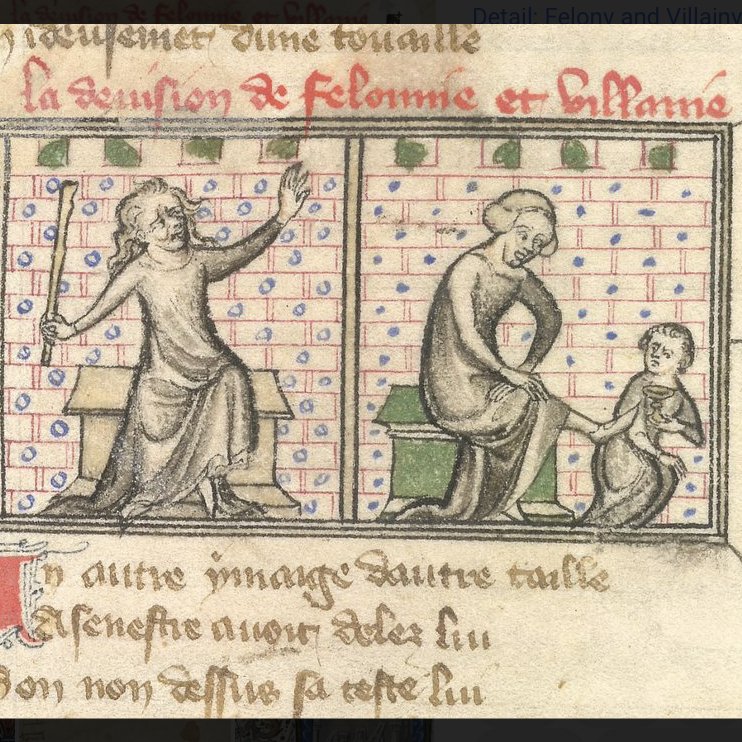 Detail: Felony and Villainy
ideusemet dune touaille
la deuision de felonnie et villanie
n autre ymaige dautre taille
A senestre auoit deles lui
son non dessus sa teste lui